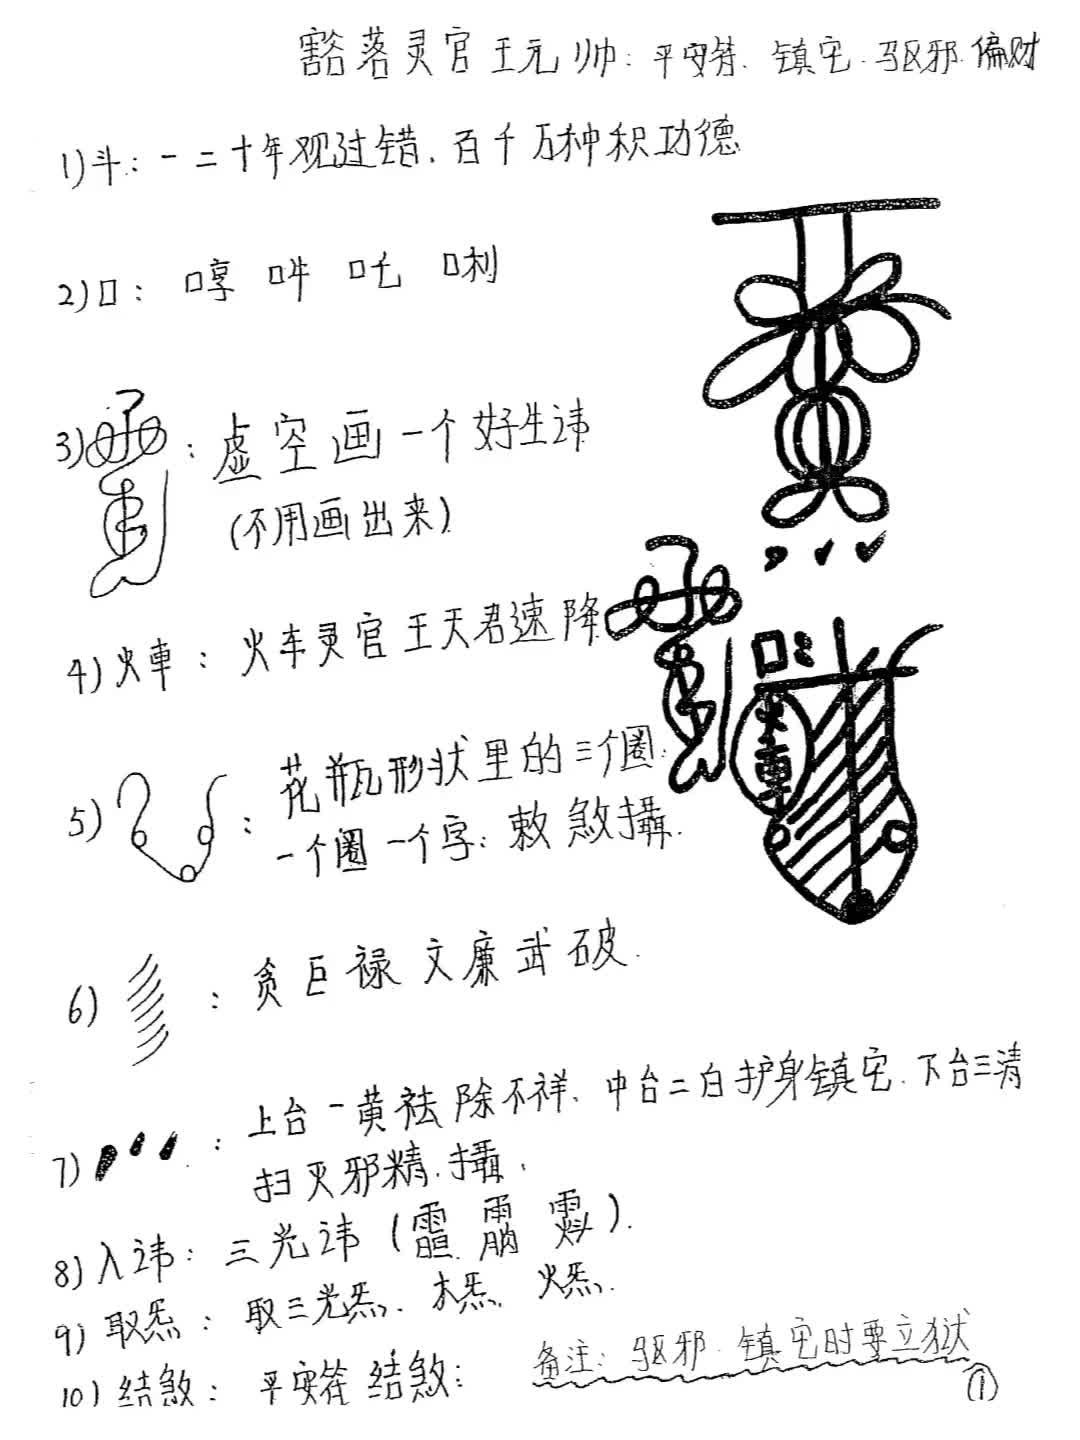 豁落灵官王元帅：平安符．镇宅．驱邪．偏财
1)斗：一二十年观过错．百千万种积功德
2)口：啍吽吒唎
3)：虚空画一个好生讳
(不用画出来)
4)火車：火车灵官王天君速降
5)：花瓶形状里的三个圈：
一个圈一个字：敕煞攝．
6)：贪巨禄文廉武破．
7)：上台一黄祛除不祥．中台二白护身镇宅．下台三清
扫灭邪精．攝．
8)入讳：三光讳()．
9)取炁：取三光炁．木炁．火炁．
10)结煞：平安符结煞：
备注：驱邪．镇宅时要立狱
①
口
火車